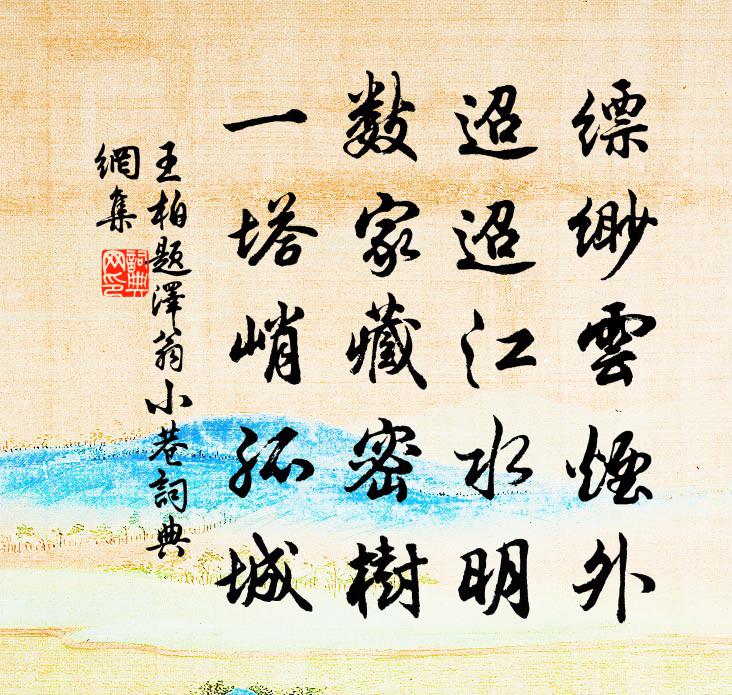 縹緲雲煙外
迢迢江水明
數家藏密樹
一塔峭孤城
王柏題澤翁小巷詞典
網集
詞典網印